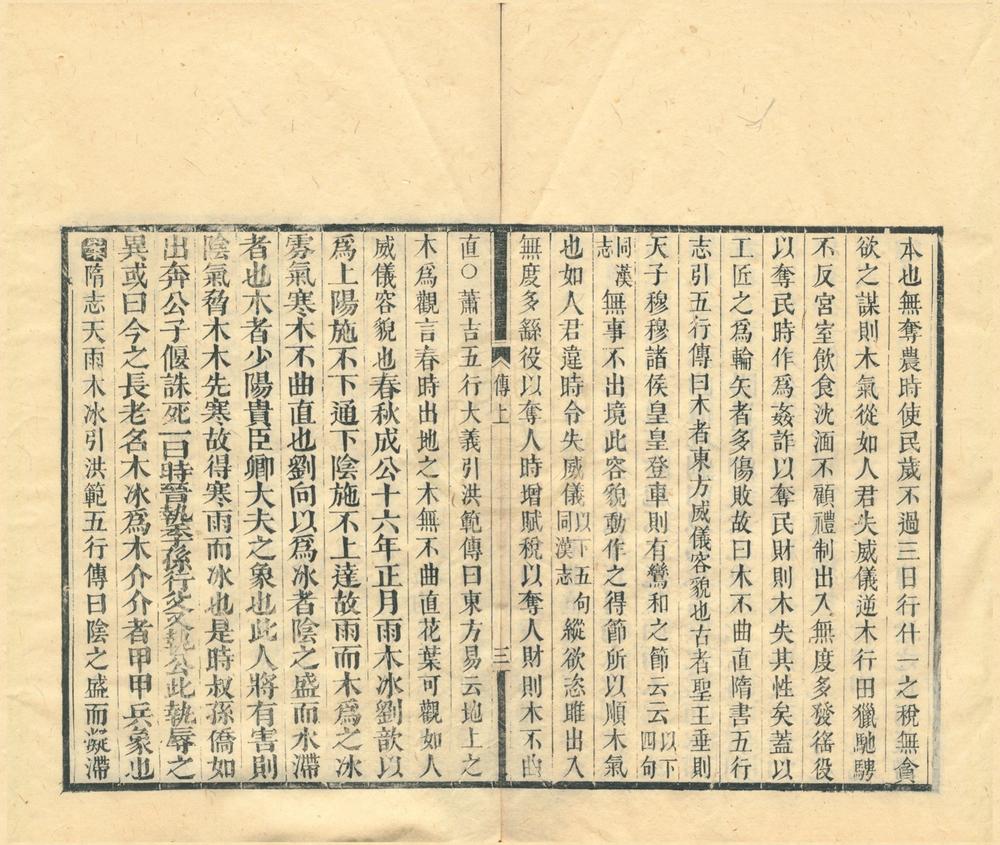 本也無奪農時使民歲不過三日行什一之稅無貪
欲之謀則木氣從如人君失威儀逆木行田獵馳騁
不反宮室飲食沈湎不顧禮制出入無度多發徭役
以奪民時作爲姦詐以奪民財則木失其性矣蓋以
工匠之爲輪矢者多傷敗故曰木不曲直隋書五行
志引五行傳曰木者東方威儀容貌也古者聖王垂則
天子穆穆諸侯皇皇登車則有鸞和之節云云以下四句
同漢志無事不出境此容貌動作之得節所以順木氣
也如人君違時令失威儀以下五句同漢志縱欲恣睢出入
無度多繇役以奪人時增賦稅以奪人財則木不曲
傳上
三
直○蕭吉五行大義引洪範傳曰東方易云地上之
木爲觀言春時出地之木無不曲直花葉可觀如人
威儀容貌也春秋成公十六年正月雨木冰劉歆以
爲上陽施不下通下陰施不上達故雨而木爲之冰
雰氣寒木不曲直也劉向以爲冰者陰之盛而水滯
者也木者少陽貴臣卿大夫之象也此人將有害則
陰氣脅木木先寒故得寒雨而冰也是時叔孫僑如
出奔公子偃誅死一曰時晉執季孫行父又執公此執辱之
異或曰今之長老名木冰爲木介介者甲甲兵象也
隋志天雨木冰引洪範五行傳曰陰之盛而凝滯